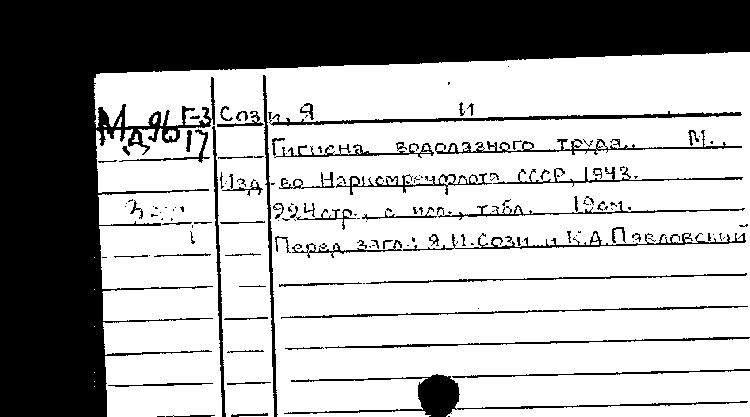 Г-3
Мд96 17
Сози, Я И
Гигиена водолазного труда. М.,
Изд-во Наркомречфлота СССР, 1943.
224 стр., с илл., табл. 19 см.
Перед загл.: Я.И.Сози и К.А.Павловский